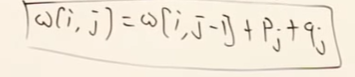 w[i, j] = w[i, j-1] + Pj + qj